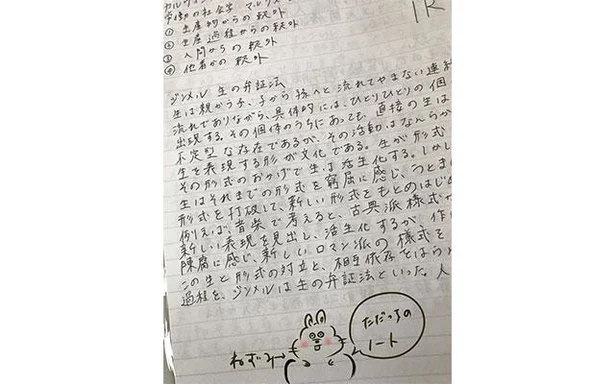 労働の社会学 マルクス
① 生産物からの疎外
② 生産過程からの疎外
③ 人間からの疎外
④ 他者からの疎外
ジンメル 生の弁証法
生は親から子、子から孫へと流れてやまない連続
流れでありながら、具体的には、ひとりひとりの個
出現する。その個体のうちにあっても、直接の生は
不定型な存在であるが、その活動はなんらか
生を表現する形が文化である。生が形式
その形式のおかげで生は活性化する。しかし
生はそれまでの形式を窮屈に感じ、うとま
形式を打破して、新しい形式をもとめはじめ
例えば、音楽で考えると、古典派様式
新しい表現を見出し、活生化するが、作
陳腐に感じ、新しいロマン派の様式を
この生と形式の対立と、相互依存をはらん
過程を、ジンメルは生の弁証法といった。人
ねずみ→
ただっちの
ノート